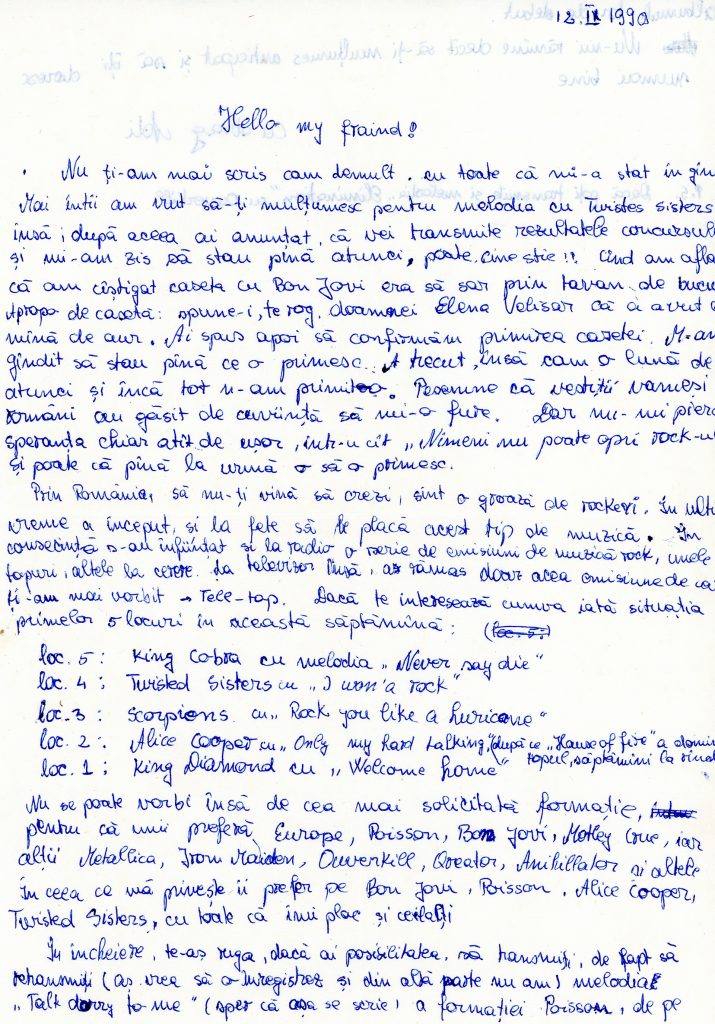 12. IX 1990
Hello my fraind!
Nu ți-am mai scris cam demult. cu toate că mi-a stat în gîn
Mai întîi am vrut să-ți mulțumesc pentru melodia cu Twistes sisters
însă, după aceea ai anunțat, că vei transmite rezultatele concursul
și mi-am zis să stau pînă atunci, poate, cine știe!! Cînd am afla
că am cîștigat caseta cu Bon Jovi era să sar prin tavan de bucu
Apropo de casetă: spune-i, te rog, doamnei Elena Velisar că a avut o
mînă de aur. Ai spus apoi să confirmăm primirea casetei. M-am
gîndit să stau pînă ce o primesc. A trecut, însă cam o lună de
atunci și încă tot n-am primit-o. Pesemne că vestiții vameși
români au găsit de cuviință să mi-o fure. Dar nu-mi pierd
speranța chiar atît de ușor, într-u cît „Nimeni nu poate opri rock-ul
și poate că pînă la urmă o să o primesc.
Prin România, să nu-ți vină să crezi, sînt o groază de rockeri. În ulti
vreme a început, și la fete să le placă acest tip de muzică. În
consecință s-au înființat și la radio o serie de emisiuni de muzică rock, unele
topuri, altele la cerere. La televizor însă, a rămas doar acea emisiune de ca
ți-am mai vorbit → Tele-top. Dacă te interesează cumva iată situația
primelor 5 locuri în această săptămînă: (loc. 5:)
loc. 5: King Cobra cu melodia „Never say die"
loc. 4: Twisted Sisters cu „I won'a rock"
loc. 3: Scorpions cu „Rock you like a huricane"
loc. 2: Alice Cooper cu „Only my hard talking" (după ce „Hause of fire" a domin
topul, săptămîni la rînd
loc. 1: King Diamond cu „Welcome home"
Nu se poate vorbi însă de cea mai solicitată formație,
pentru că unii preferă Europe, Poisson, Bon Jovi, Motley Crue, iar
alții Metallica, Iron Maiden, Ouwerkill, Qreator, Anihillator și altele
În ceea ce mă privește îi prefer pe Bon Jovi, Poisson, Alice Cooper,
Twisted Sisters, cu toate că îmi plac și ceilalți
În încheiere, te-aș ruga, dacă ai posibilitatea, să transmiți, de fapt să
retransmiți (aș vrea să o înregistrez și din altă parte nu am) melodia
„Talk dorry to me" (sper că așa se scrie) a formației Poisson, de pe